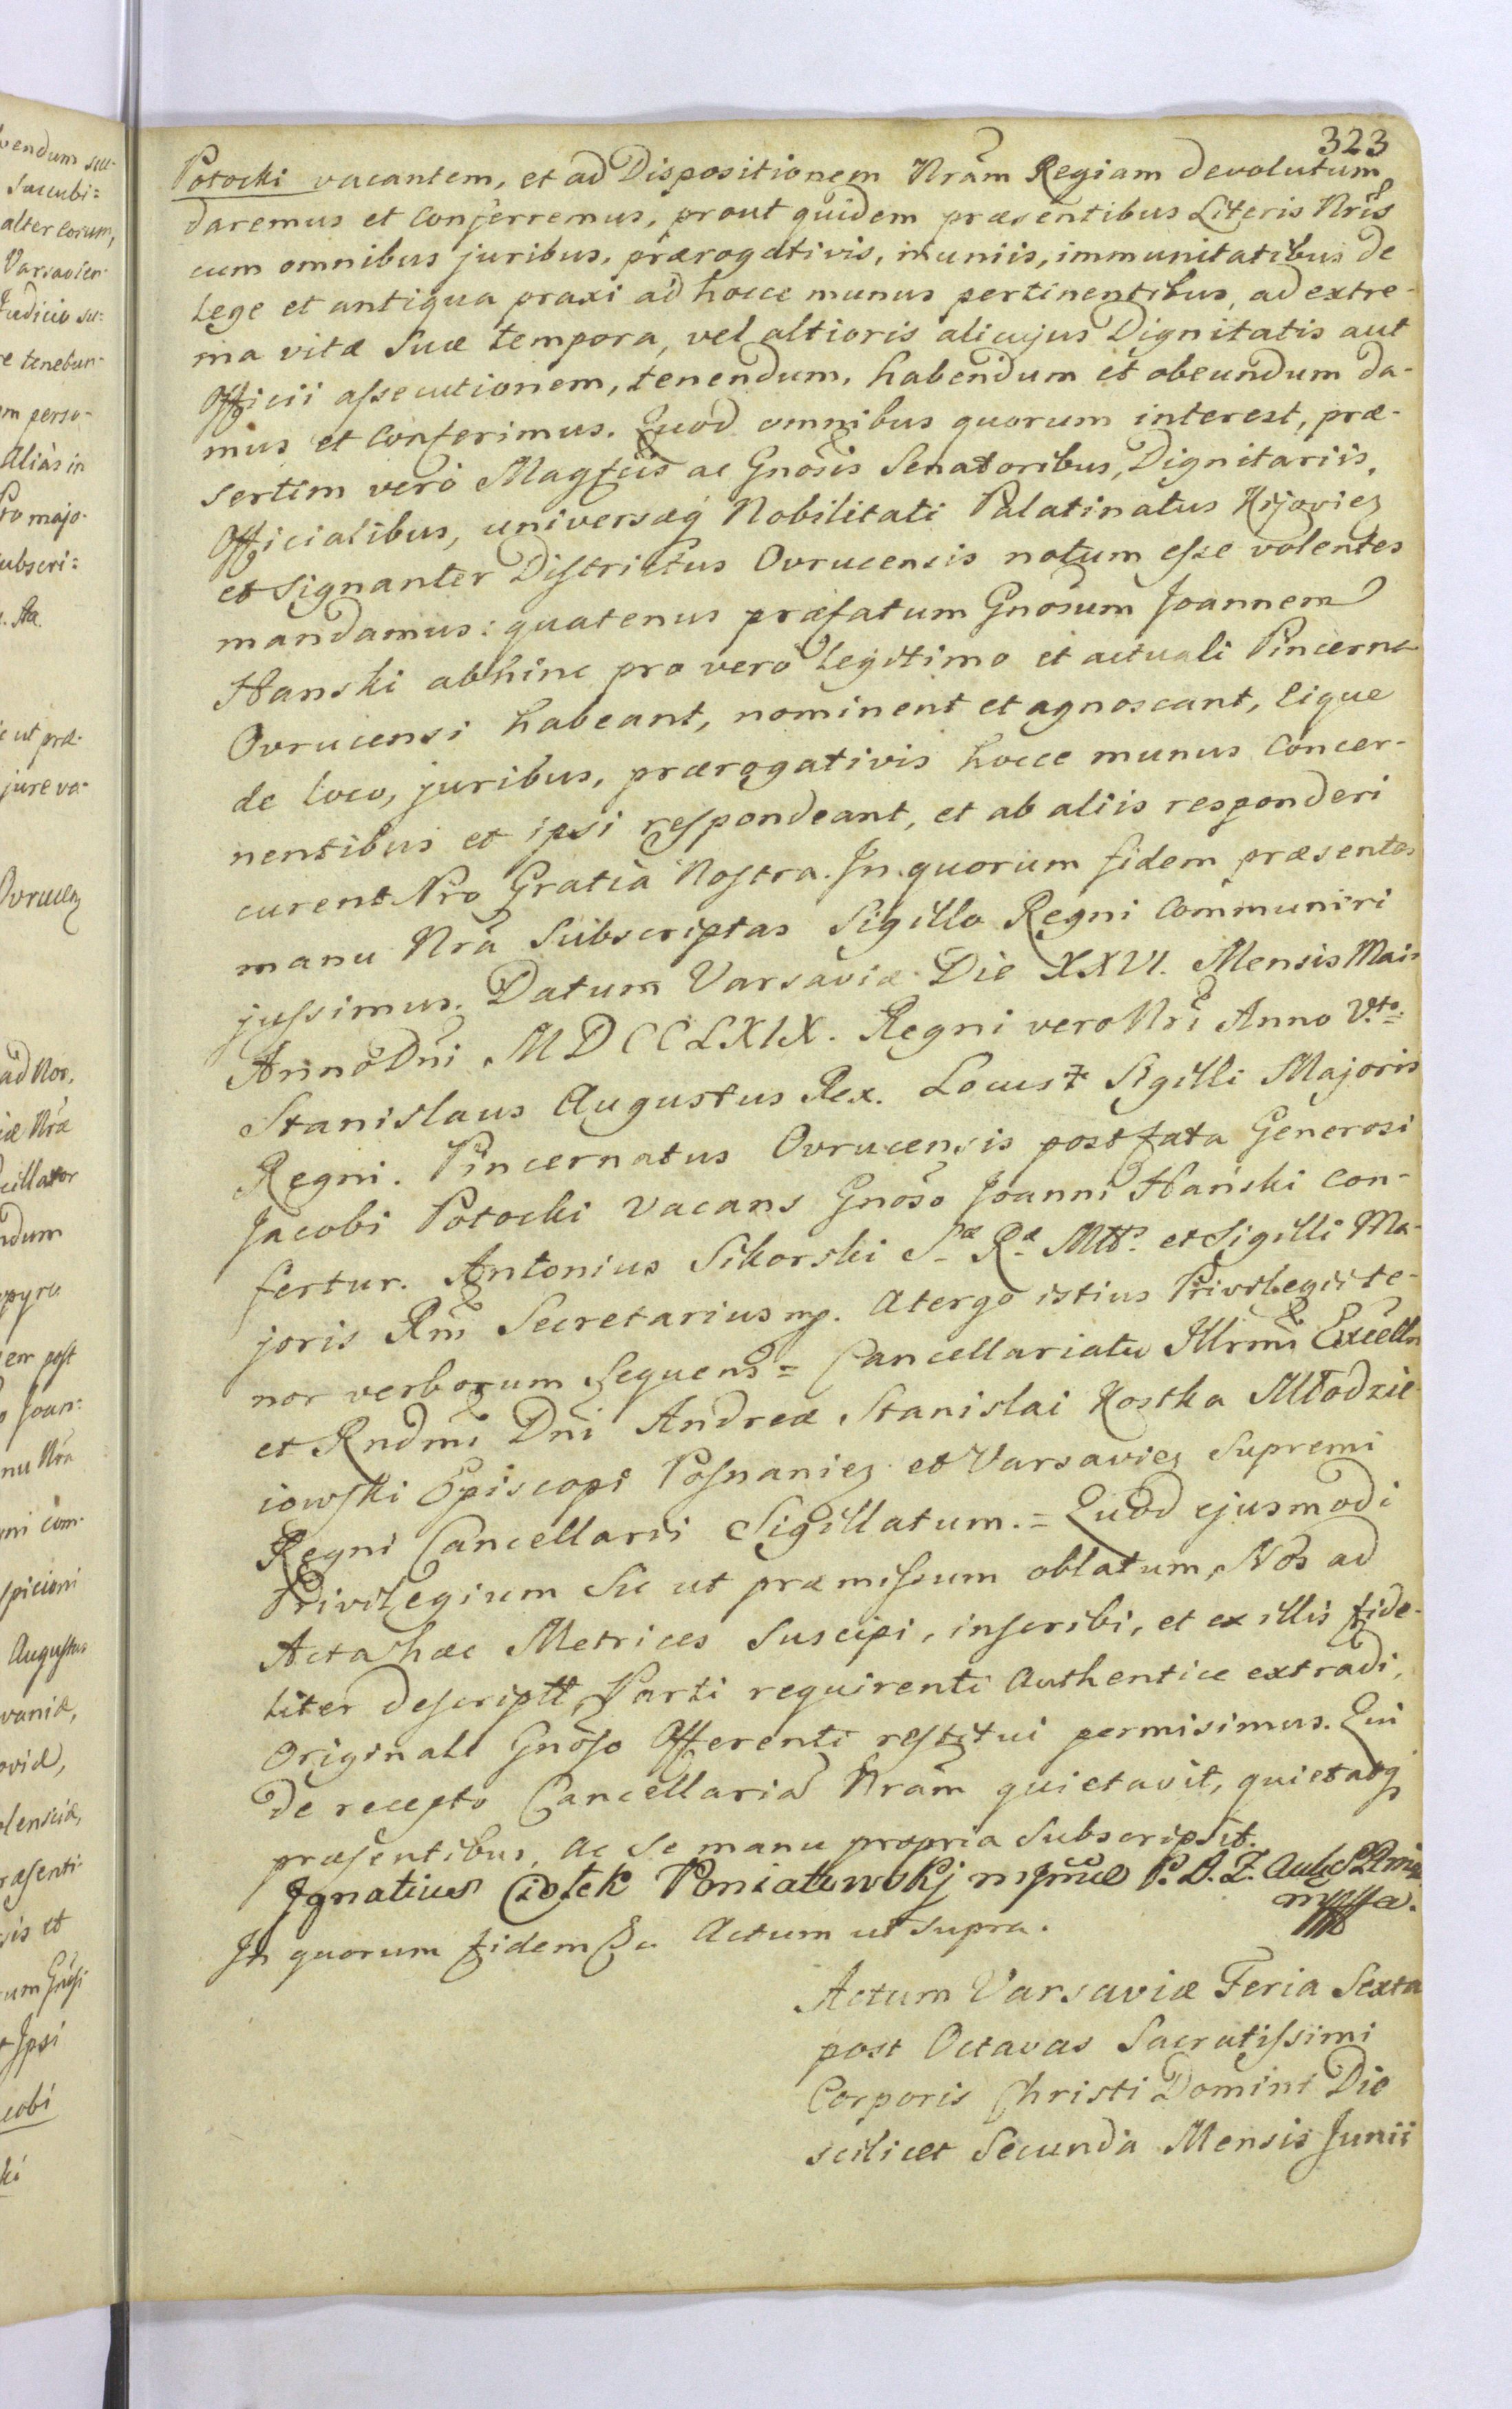 323
Potocki vacantem, et ad Dispositionem Nrãm Regiam devolutum,
daremus et conferremus, prout quidem præsentibus Literis Nris
cum omnibus juribus, prærogativis, muniis, immunitatibus de
Lege et antiqua praxi ad hocce munus pertinentibus, ad extre-
ma vitæ suæ tempora, vel altioris alicujus Dignitatis aut
Officii assecutionem, tenendum, habendum et obeundum da-
mus et conferimus. Quod omnibus quorum interest, præ-
sertim vero Magfcis ac Gnosis Senatoribus, Dignitariis,
Officialibus, universæq Nobilitati Palatinatus Kijovien
et signanter Districtus Ovrucensis notum esse volentes
mandamus: quatenus præfatum Gnosum Joannem
Hanski abhinc pro vero Legitimo et actuali Pincerna
Ovrucensi habeant, nominent et agnoscant, Eique
de loco, juribus, prærogativis hocce munus concer-
nentibus et ipsi respondeant, et ab aliis responderi
curent Pro Gratia Nostra. In quorum fidem præsentes
manu Nra subscriptas Sigillo Regni communiri
jussimus. Datum Varsaviæ Die XXVI. Mensis Maii
Anno Dni MDCCLXIX. Regni vero Nri Anno V.to
Stanislaus Augustus Rex. Locus ‡ Sigilli Majoris
Regni. Pincernatus Ovrucensis post fata Generosi
Jacobi Potocki vacans Gnoso Joanni Hański con-
fertur. Antonius Sikorski S.æ R.æ Mttis et Sigilli Ma-
joris Rni Secretarius mp. A tergo istius Privilegii te-
nor verborum sequens = Cancellariatu Illrmi Excelln
et Rndmi Dni Andreæ Stanislai Kostka Młodzie-
iowski Episcopi Posnanien et Varsavien Supremi
Regni Cancellarii Sigillatum. = Quod ejusmodi
Privilegium sic ut præmissum oblatum, Nos ad
Acta hæc Metrices suscipi, inscribi, et ex illis fide-
liter descriptt, Parti requirenti authentice extradi,
Originale Gnoso Offerenti restitui permisimus. Qui
de recepto Cancellariã Nrãm quietavit, quietatq
præsentibus, ac se manu propria subscripsit.
Ignatius Ciołek Poniatowskj
In quorum fidem &c Actum ut supra.
Actum Varsaviæ Feria Sexta
post Octavas Sacratissimi
Corporis Christi Domini Die
scilicet Secunda Mensis Junii